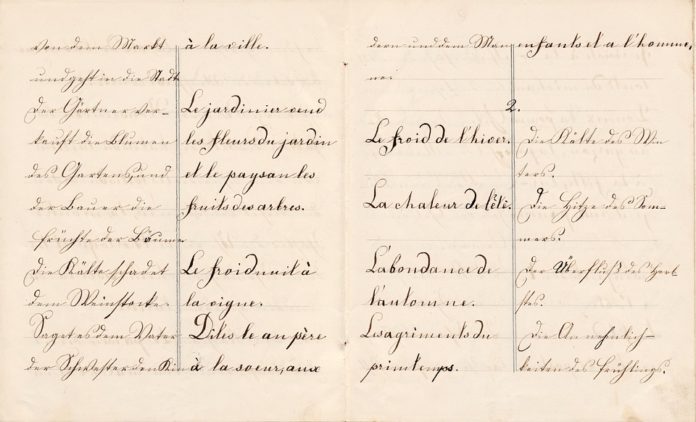 von dem Markt
und geht in die Stadt
Der Gärtner ver-
kauft die Blumen
des Gartens, und
der Bauer die
früchte der Bäume
Die Kälte schadet
dem Weinstocke.
Saget es dem Vater
der Schwester den Kin
à la ville.
Le jardinier vend
les fleurs du jardin
et le paysan les
fruits des arbres.
Le froid nuit à
la vigne.
Dites le au père
à la soeur, aux
dern und dem Man
ne.
enfants et a l'homme.
2.
Le froid de l'hiver.
La chaleur de l'été.
L'abondance de
l'automne.
Les agriments du
printemps.
Die Kälte des Win
ters.
Die Hitze des Som-
mers.
Der Überfluß des Herb
stes.
Die Annehmlich-
keiten des Frühlings.